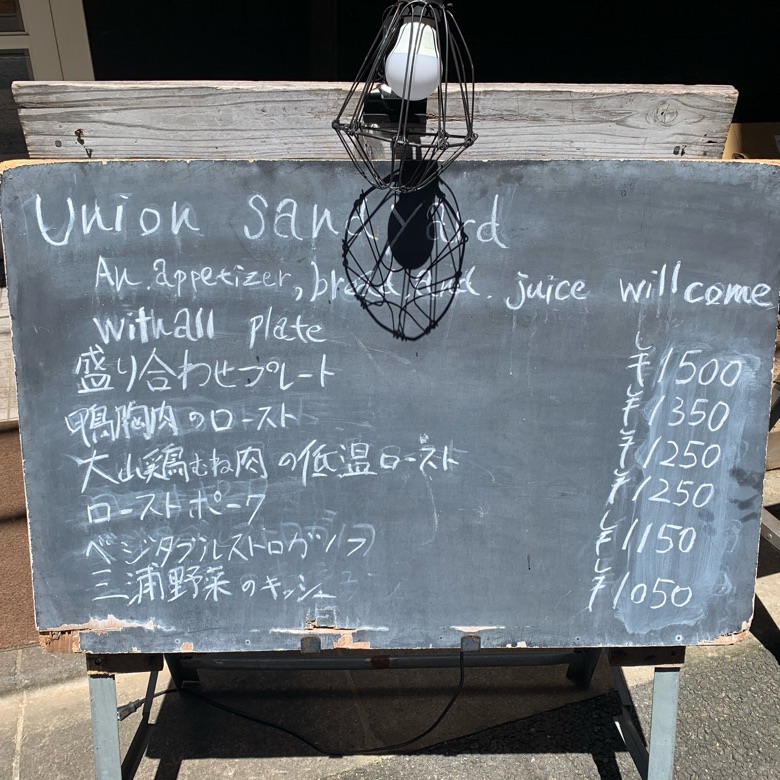 Union Sand yard
An. appetizer, bread and. juice will come
with all plate
盛り合わせプレート ¥1500
鴨胸肉のロースト ¥1350
大山鶏むね肉の低温ロースト ¥1250
ローストポーク ¥1250
ベジタブルストロガノフ ¥1150
三浦野菜のキッシュ ¥1050